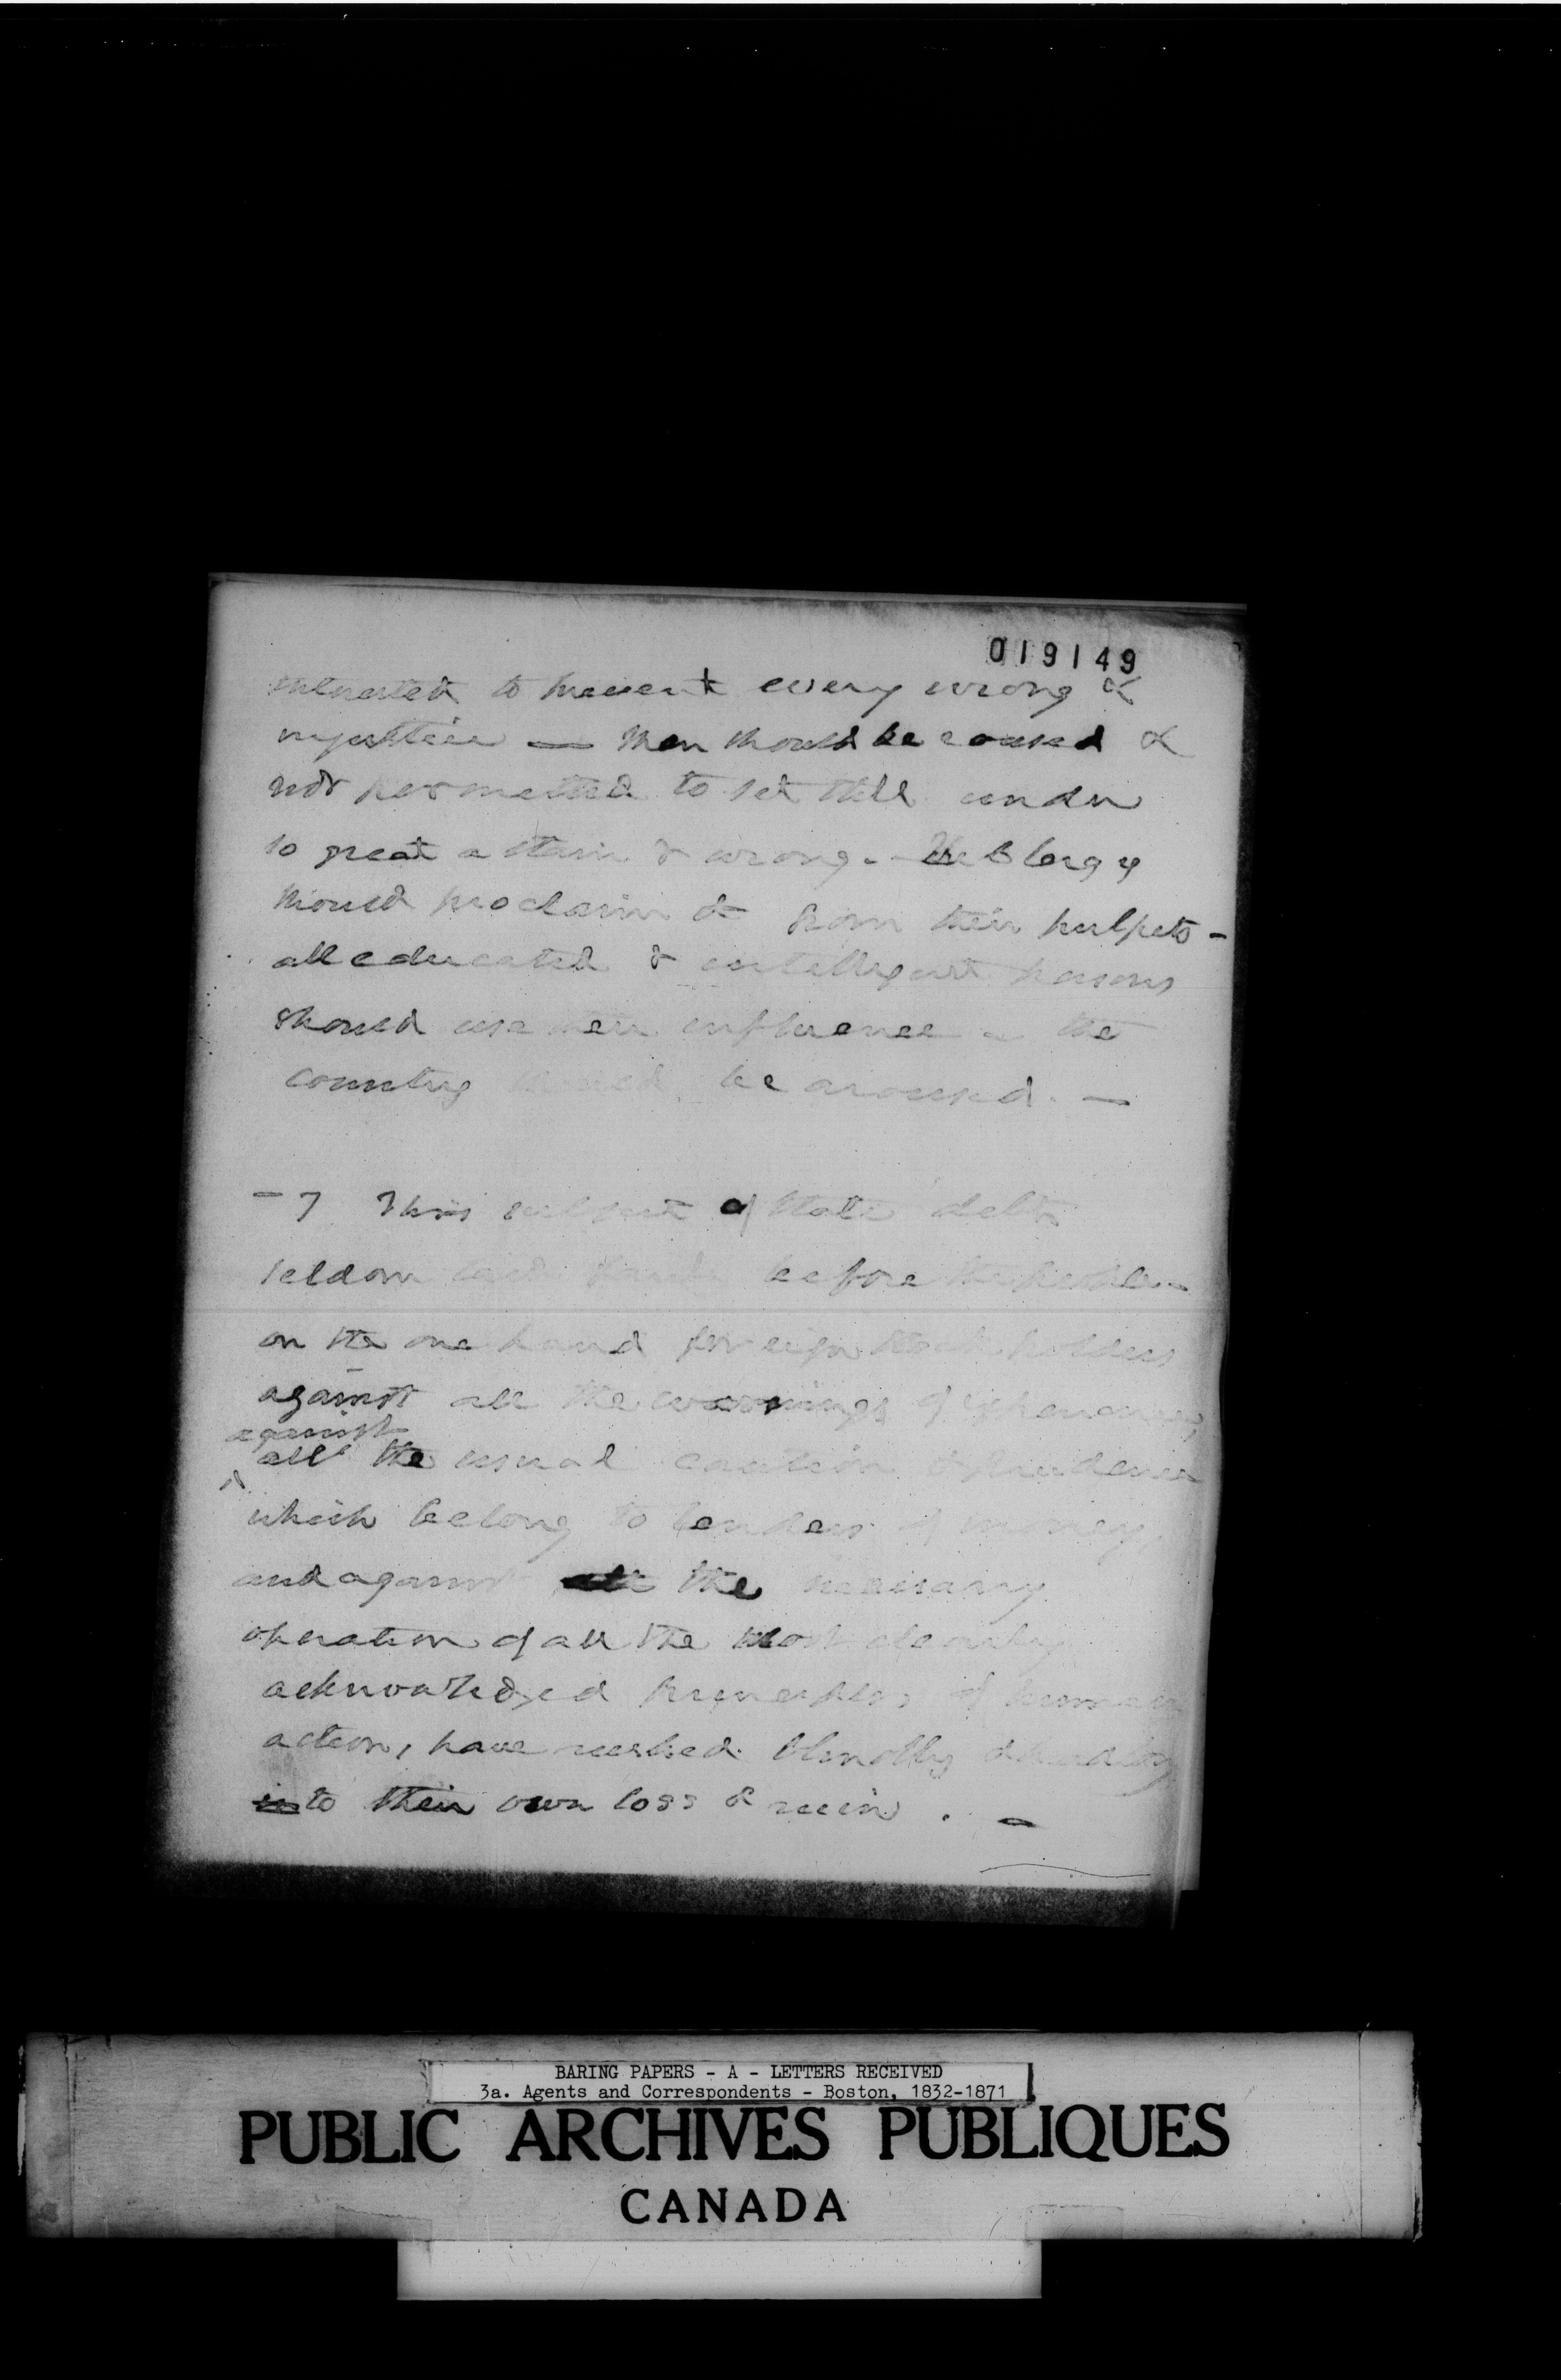 019149
interested to prevent every wrong &
injustice — Men should be roused &
not permitted to sit still under
so great a stain & wrong. - The Clergy
should proclaim it from their pulpits -
all educated & intelligent persons
should use their influence - the
country should be aroused. —
- 7 This subject of State debts
seldom before the people -
on the one hand foreign stock holders
against all the warnings of experience,
against
& all the usual caution & prudence
which belong to lenders of money,
and against the necessary
operation of all the most clearly
acknowledged principles of human
action, have rushed blindly
into their own loss & ruin . -
BARING PAPERS - A - LETTERS RECEIVED
3a. Agents and Correspondents - Boston, 1832-1871
PUBLIC ARCHIVES PUBLIQUES
CANADA